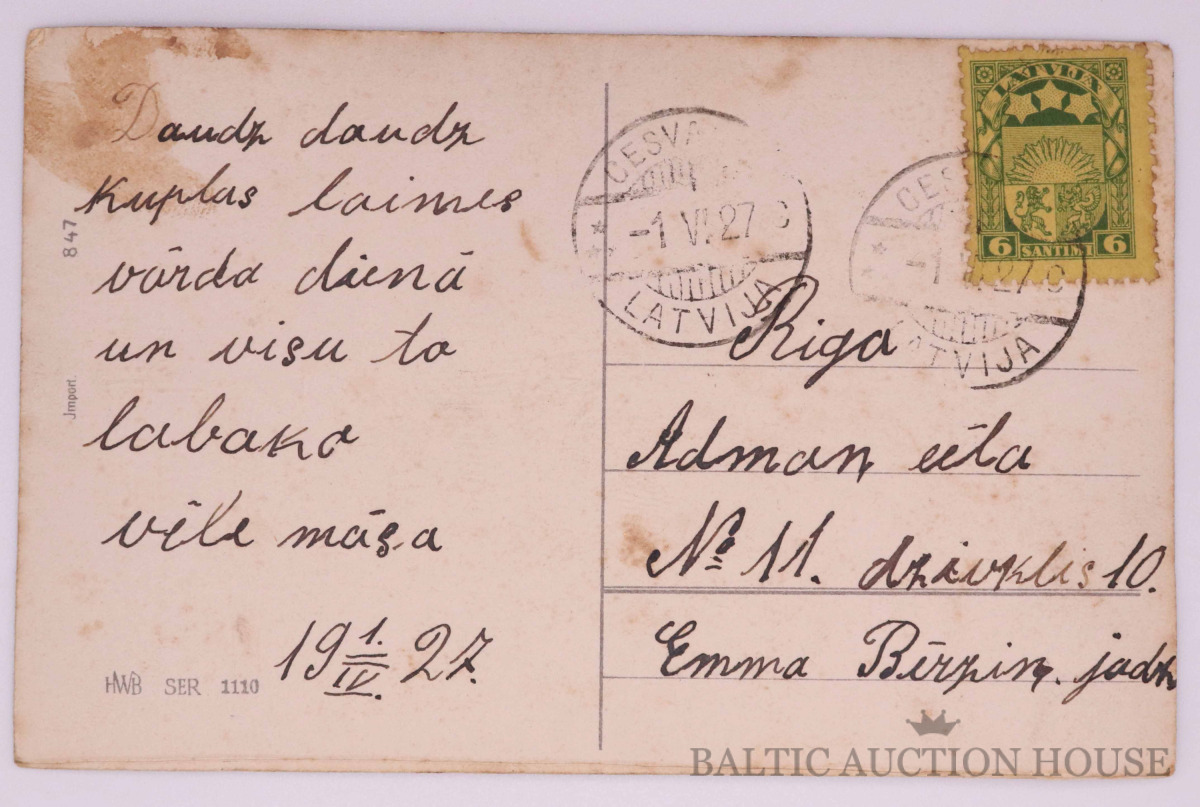 Daudz daudz
Kuplas laimes
vārda dienā
un visu to
labako
vēle māsa
19 1./IV. 27.
847
Jmport.
HWB SER 1110
CESVA
-1 VI. 27 C
LATVIJA
CES
-1 27 C
LATVIJA
LATVIJA
6 SANTIM 6
Riga
Adman
№ 11. dzivklis 10.
Emma Bērzin. jadz
BALTIC AUCTION HOUSE